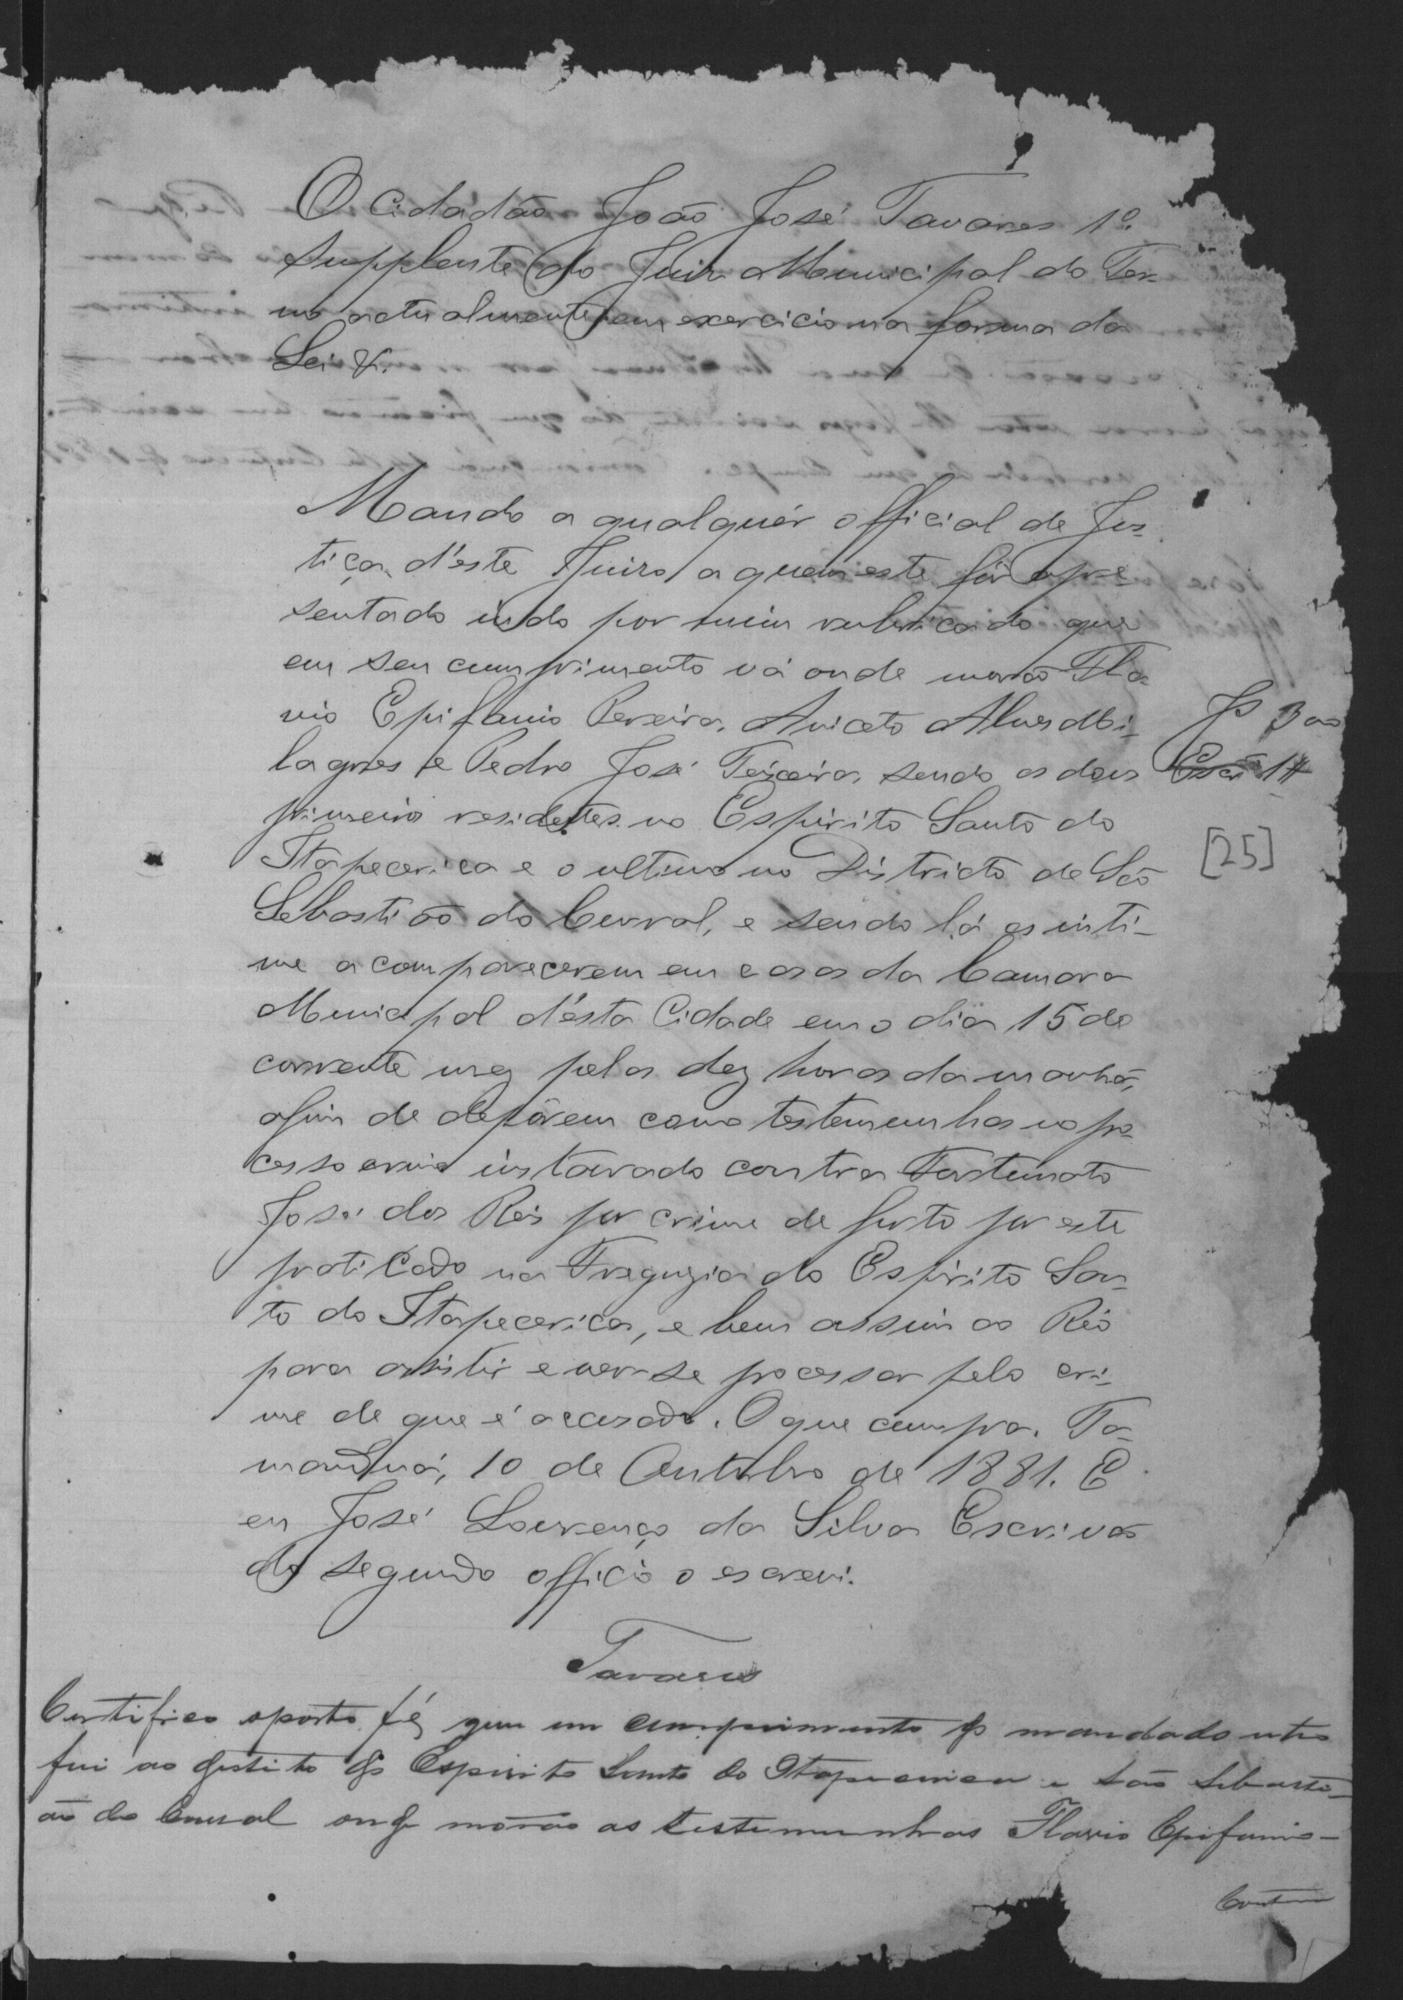 O Cidadão João José Tavares 1º.
Supplente do Juiz Municipal do Ter-
mo actualmente em exercicio na forma da
Lei &.
Mando a qualquér official de Jus-
tiça d'éste Juizo a quem este fôr apre
sentado indo por mim rubricado que
em seu cumprimento vá onde morão Fla-
vio Epifanio Pereira, Aniceto Alves Mi-
lagres e Pedro José Teixeira, sendo os dous
primeiro residentes no Espirito Santo do
Itapecerica e o ultimo no Districto de São
Sebastião do Curral, e sendo lá os inti-
me a comparecerem em casas da Camara
Municipal d'ésta Cidade em o dia 15 do
corrente mez pelas dez horas da manhã,
afim de depôrem como testemunhas no pro-
cesso crime instaurado contra Fortunato
José dos Reis por crime de furto por este
praticado na Freguzia do Espirito San-
to do Itapecerica, e bem assim ao Réo
para assistir e ver-se processar pelo cri-
me de que é accusado. O que cumpra. Ta-
manduá, 10 de Outubro de 1881. E
eu José Lourenço da Silva Escrivão
do segundo officio o escrevi.
Tavares
[25]
Certifico e porto fé, que em cumprimento do mandado
fui ao destito do Espirito Santo do Itapecirica e São Sebasti-
ão do Curral onde morão as testemunhas Flavio Epifanio-